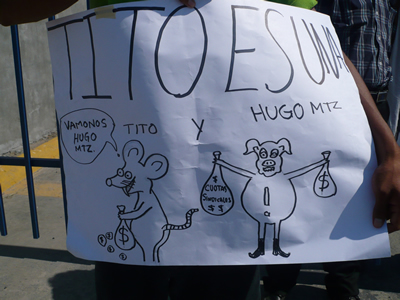 TITO ES UNA
Y
HUGO MTZ
TITO
VAMONOS
HUGO
MTZ.
$
CUOTAS
SINDICALES
$ $
$
$